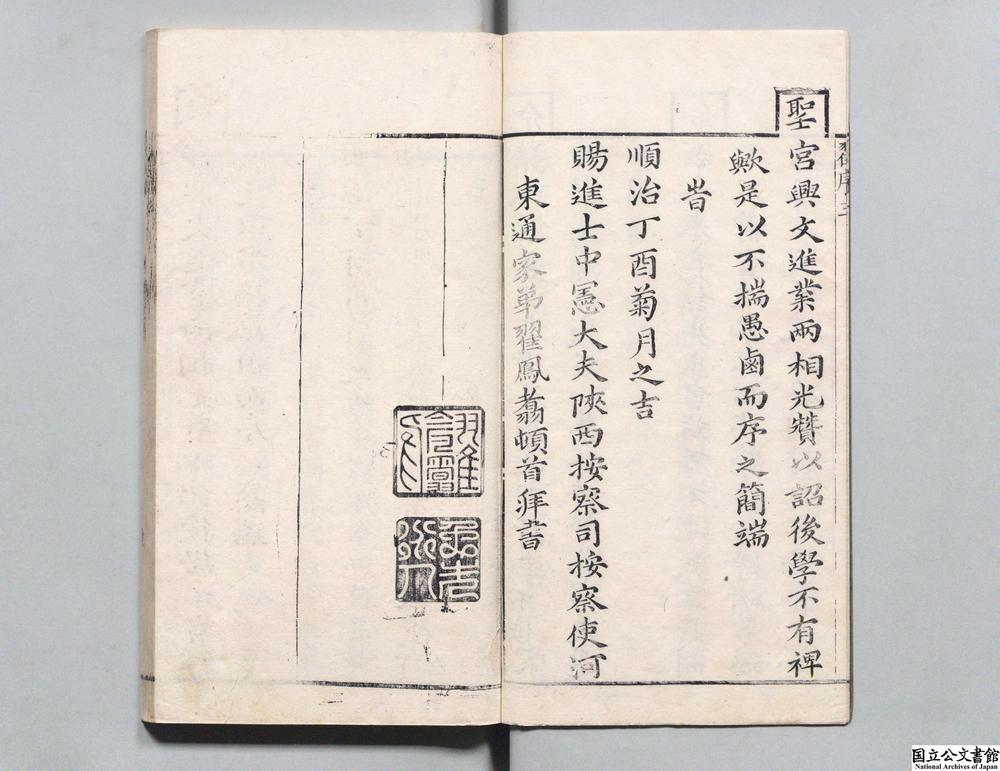 聖宮興文進業兩相光贊以詔後學不有裨
歟是以不揣愚鹵而序之簡端
旹
順治丁酉菊月之吉
賜進士中憲大夫陝西按察司按察使河
東通家弟翟鳳翥頓首拜書
国立公文書館
National Archives of Japan